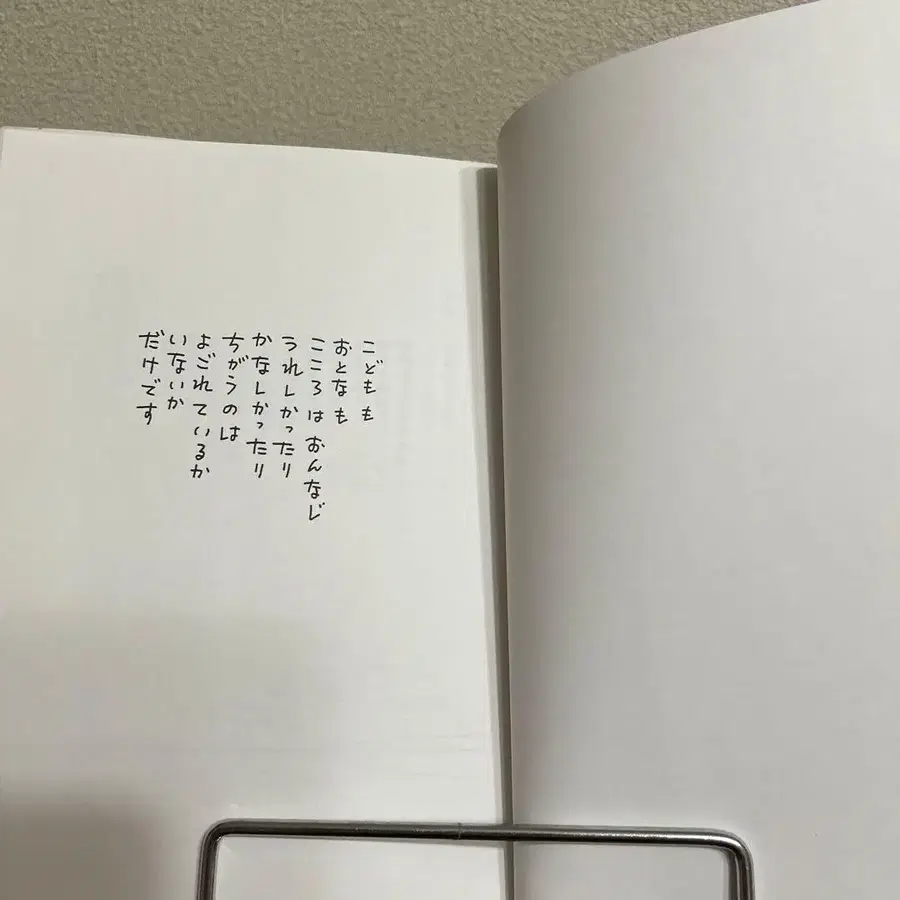 こどもも
おとなも
こころは おんなじ
うれしかったり
かなしかったり
ちがうのは
よごれているか
いないか
だけです